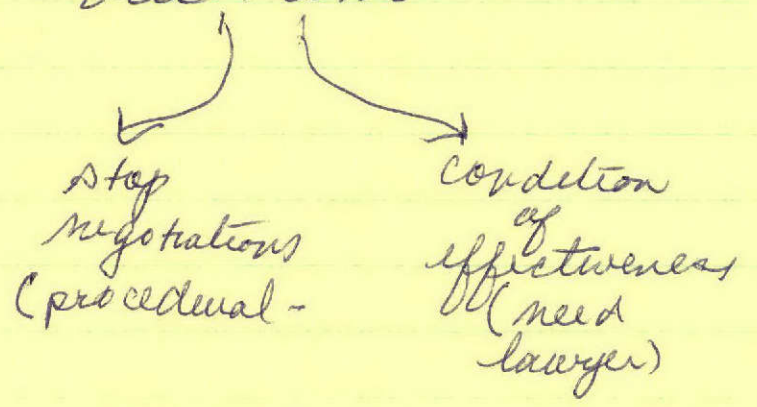 stop
negotiations
(procedural -
condition
of
effectiveness
(need
lawyer)